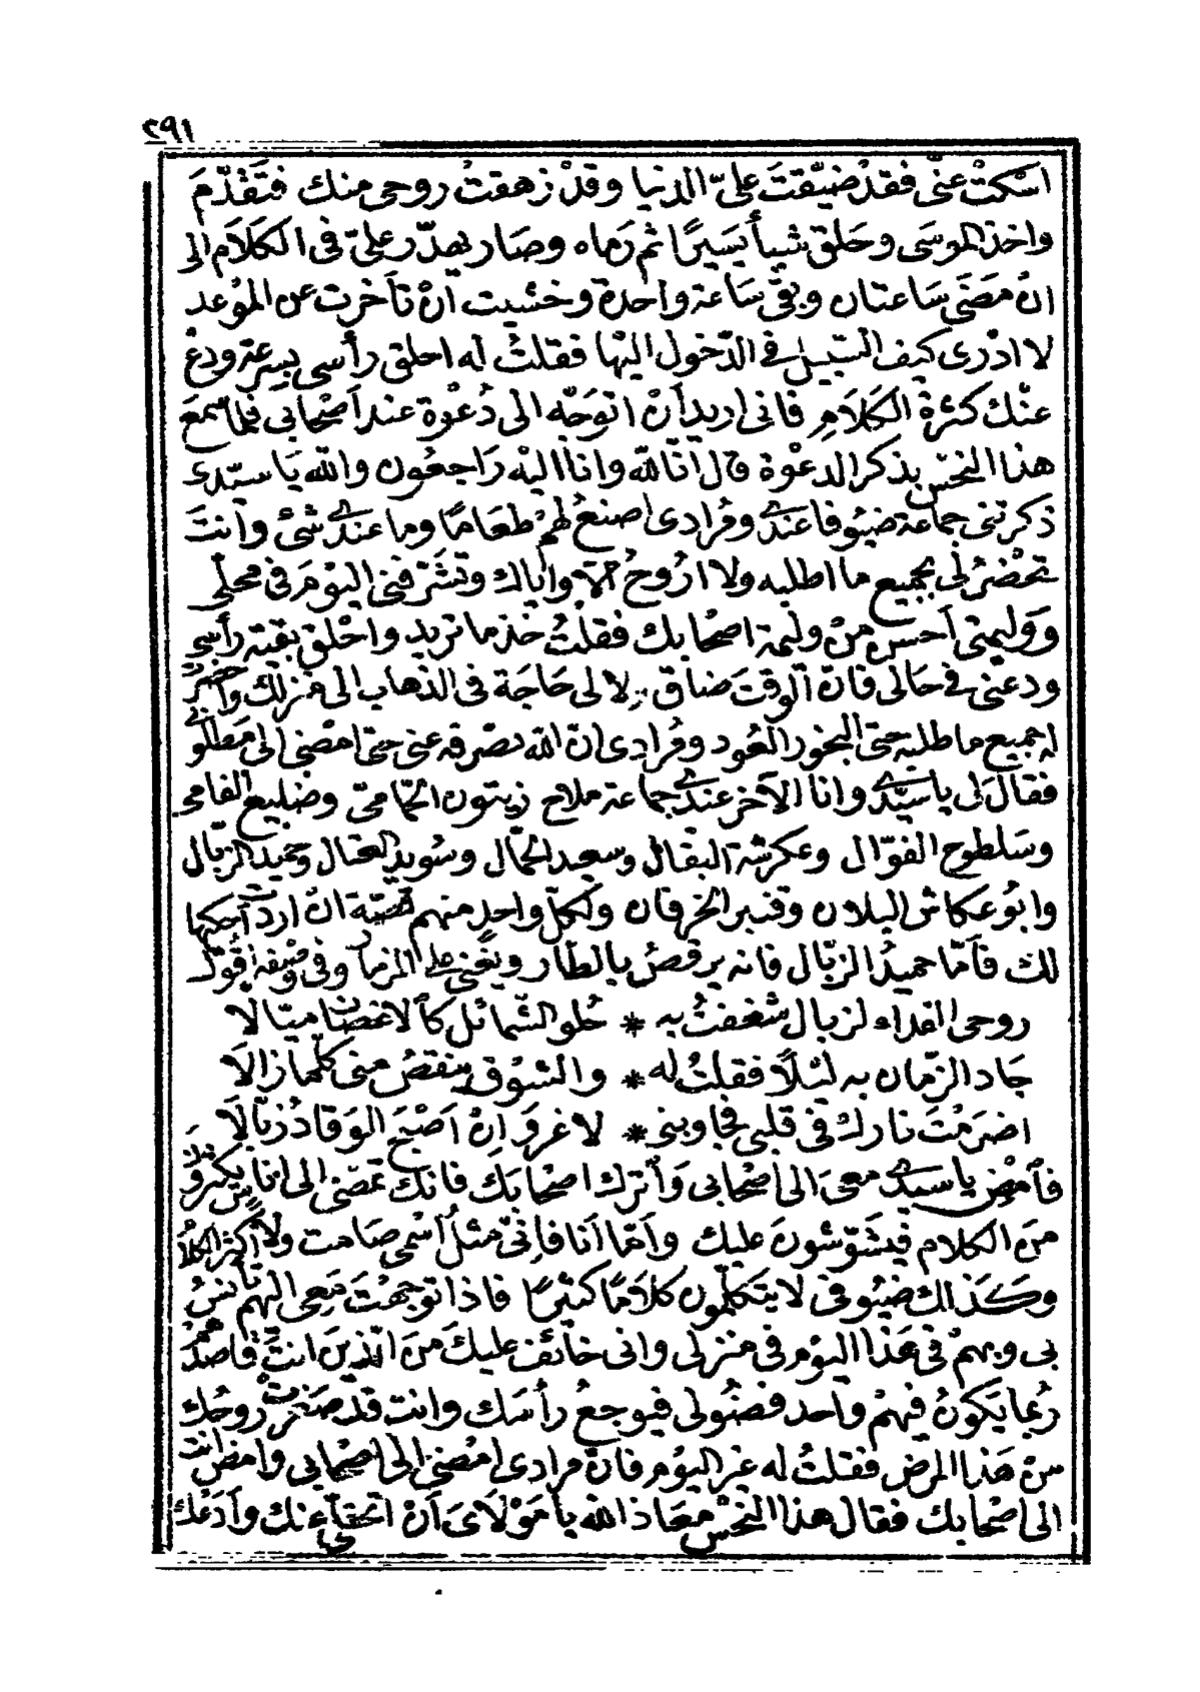 ٢٩١
اسكتْ عنّى فقدْ ضيّقتَ علىّ الدنيا وقدْ زهقتُ روحى منك فتَقدّمَ
واخذ الموسَى وحَلق شيأً يَسيرًا ثم رَماه وصَار يهدّر علىّ فى الكَلاَم الى
انْ مَضَى سَاعتان وبقى سَاعة واحدة وخشيت انْ تأخرت عن الموْعد
لا ادْرى كيف السَبيل فى الدّخول اليْها فقلتُ له احلق رأسى بسرعة ودعْ
عنّك كثرة الكَلاَمِ فانى اريد أنْ اتوَجّه الى دُعْوة عند اَصْحابى فلما سمعَ
هذا النحْس بذكر الدعْوة قال انّا لله وانا اليْه رَاجعُون والله يَا سيّدى
ذكرتنى جماعة ضيُوفا عندى ومُرادى اصنعُ لهمْ طعَامًا وما عندى شئ وانتَ
تحْضرُ لى بجميع ما اطلبه ولا ارُوحُ الاّ واياك وتشَرّفنى اليَوْمَ فى محلّى
وَوَليمتى اَحسن منْ وليمة اصْحابك فقلتُ خذ ما تريد واحْلق بقية رأسى
ودعنى فى حَالى فانّ الوقتَ ضاق لا لى حَاجَة فى الذهاب الى منزلك واحضرت
له جميع ما طلبه حتى البخور العُود ومُرادى انّ الله يصْرفه عنى حتى امضى الى مَطلوبى
فقال لى ياسيّدى وانا الآخر عندى جماعة ملاح زيتون الحمّامىّ وضليع الفامى
وسَلطوح الفوّال وعكرشة البقال وسعيد الجمّال وسُويد العتال وحميد الزبّال
وابُو عكاش البلان وقنبر الخرقان ولكلّ واحدٍ منهم قصّة انْ اردْت أحكيها
لك فأمّا حميدُ الزبّال فانه يرقصُ بالطار ويغنى على المزمار وفى وصْفه اقُول
روحى الفداء لزبال شغفتُ به * حُلو الشّمائل كالاغصان ميّالا
جَاد الزّمان به ليْلاً فقلتُ له * والشوْق ينقصُ منى كلّما زالاَ
اضرَمْتَ نارك فى قلبى فجاوبنى * لا غروَ انْ اَصْبَحَ الوَقادُ زبّالاَ
فأمْض ياسيدى معى الى اصْحابى وَاترك اصْحابَك فانك تمضى الى اناس يكثرُونَ
منَ الكلام فيشوّشونَ عليك وأمّا أنا فإنّى مثلُ اسْمى صَامت ولا أكثر الكلاَم
وكَذلك ضيُوفى لا يتكلّمون كلاَمًا كثيرًا فاذا توجهْتَ مَعى اليهم تأنسُ
بى وبهمْ فى هَذا اليَوْم فى منزلى وانى خائف عليكَ منَ الذينَ انتَ قَاصدُهمْ
رُبما يَكونُ فيهمْ وَاحد فضُولى فيوجعُ رأسَك وانت قد صَغرتْ روحُك
منْ هَذا المرض فقلتُ له غير اليوْمِ فانّ مرادى امْضى الى اصْحابى وامض انتَ
الى اصْحابك فقال هذا النحْسُ معَاذ الله يا مَوْلاَىَ اَنْ اتخلّى عنك وأدَعُك